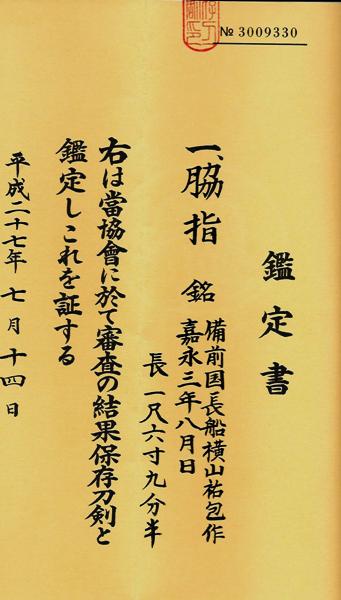 № 3009330
鑑定書
一、脇指 銘 備前国長船横山祐包作
嘉永三年八月日
長 一尺六寸九分半
右は當協會に於て審査の結果保存刀剣と
鑑定しこれを証する
平成二十七年 七月 十四日